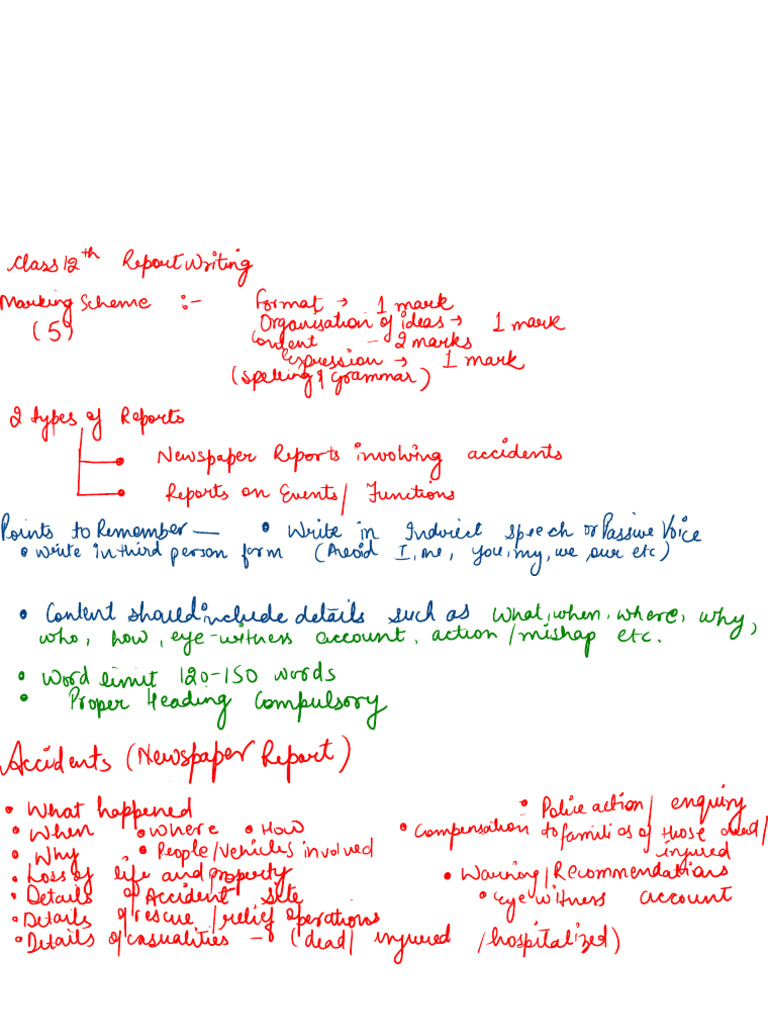 Class 12th Report Writing
Marking Scheme :- Format → 1 mark
(5) Organisation of ideas → 1 mark
Content - 2 marks
Expression → 1 mark
(Spelling & Grammar)
2 types of Reports
• Newspaper Reports involving accidents
• Reports on Events/ Functions
Points to Remember — • Write in Indirect speech or Passive Voice
• Write in third person form (Avoid I, me, you, my, we, our etc)
• Content should include details such as what, when, where, why,
who, how, eye-witness account, action/mishap etc.
• Word limit 120-150 words
• Proper Heading Compulsory
Accidents (Newspaper Report)
• What happened • Police action/ enquiry
• When • Where • How • Compensation to families of those dead/
injured
• Why • People/Vehicles involved
• Loss of life and property • Warning/Recommendations
• Details of Accident Site • Eye witness account
• Details of rescue/relief operations
• Details of casualities - (dead/ injured /hospitalized)